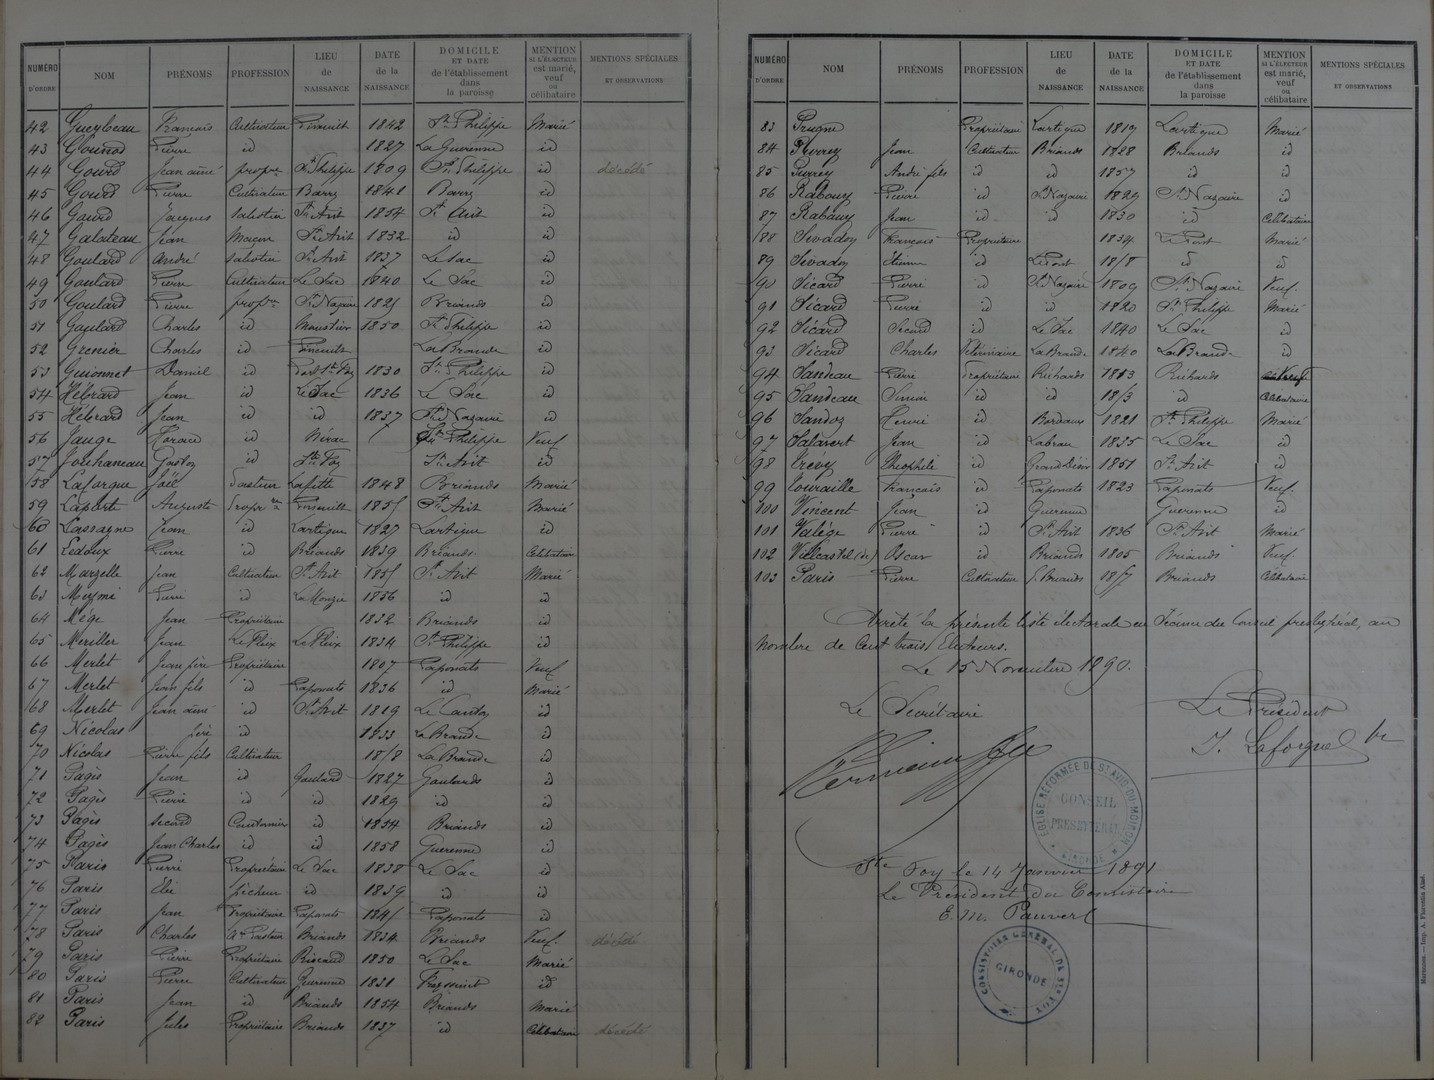 NUMÉRO D'ORDRE NOM PRÉNOMS PROFESSION LIEU de NAISSANCE DATE de la NAISSANCE DOMICILE ET DATE de l'établissement dans la paroisse MENTION SI L'ÉLECTEUR est marié, veuf ou célibataire MENTIONS SPÉCIALES ET OBSERVATIONS
42 François Cultivateur 1842 St Philippe Marié
43 Pierre id 1827 La Guerenne id
44 Gourd Jean aîné propre St Philippe 1809 St Philippe id décédé
45 Gourd Pierre Cultivateur Barry 1841 Barry id
46 Gourd Jacques St Avit 1854 St Avit id
47 Galateau Jean Maçon St Avit 1832 id id
48 Goulard André St Avit 1837 Le Sac id
49 Goulard Pierre Cultivateur Le Sac 1840 Le Sac id
50 Goulard Pierre propre St Nazaire Briands id
51 Goulard Charles id 1850 St Philippe id
52 Grenier Charles id La Brande id
53 Guionnet Daniel id 1830 St Philippe id
54 Hébrard Jean id Le Sac 1836 Le Sac id
55 Hébrard Jean id id 1837 St Nazaire id
56 Jauge id Nérac St Philippe Veuf
57 Jouhaneau Gaston id Ste Foy St Avit id
58 Laforgue Joël Pasteur Lafitte 1848 Briands Marié
59 Laport Auguste Propre St Avit Marié
60 Lassagne Jean id Lartigue 1827 Lartigue id
61 Ledoux Pierre id Briands 1839 Briands Célibataire
62 Marzelle Jean Cultivateur St Avit St Avit Marié
63 Meymé Pierre id 1836 id id
64 Mége Jean Propriétaire 1832 Briands id
65 Meriller Jean Le Fleix Le Fleix 1834 St Philippe id
66 Merlet Jean père Propriétaire 1807 Paponats Veuf
67 Merlet Jean fils id Paponats 1836 id Marié
68 Merlet Jean aîné id St Avit 1819 id
69 Nicolas père id 1833 La Brande id
70 Nicolas Pierre fils Cultivateur La Brande id
71 Pagès Jean id Goulard 1827 Goulards id
72 Pagès Pierre id id 1829 id id
73 Pagès Second Cantonnier id 1854 Briands id
74 Pagès Jean Charles id id 1858 Guerenne id
75 Paris Pierre Propriétaire Le Sac 1838 Le Sac id
76 Paris Elie pêcheur id 1839 id id
77 Paris Jean Propriétaire Paponats Paponats id
78 Paris Charles an Pasteur Briands 1834 Briands Veuf. décédé
79 Paris Pierre Propriétaire Ricaud 1850 Le Sac Marié
80 Paris Pierre Cultivateur Guerenne 1831 id
81 Paris Jean id Briands 1854 Briands Marié
82 Paris Jules Propriétaire Briands 1837 id Célibataire décédé
NUMÉRO D'ORDRE NOM PRÉNOMS PROFESSION LIEU de NAISSANCE DATE de la NAISSANCE DOMICILE ET DATE de l'établissement dans la paroisse MENTION SI L'ÉLECTEUR est marié, veuf ou célibataire MENTIONS SPÉCIALES ET OBSERVATIONS
83 Propriétaire Lartigue 1819 Lartigue Marié
84 Jean Cultivateur Briands 1828 Briands id
85 André fils id id 1857 id id
86 Rabouy Pierre id St Nazaire 1829 St Nazaire id
87 Rabouy Jean id id 1830 id Célibataire
88 Sivadon François Propriétaire 1834 Le Pont Marié
89 Sivadon Etienne id Le Pont id id
90 Sicard Pierre id St Nazaire 1809 St Nazaire Veuf.
91 Sicard Pierre id id 1820 St Philippe Marié
92 Sicard Second id Le Sac 1840 Le Sac id
93 Sicard Charles Vétérinaire La Brande 1840 La Brande id
94 Sandeau Pierre Propriétaire Richards 1813 Richards Veuf
95 Sandeau Simon id id id Célibataire
96 Sandoz Henri id Bordeaux 1821 St Philippe Marié
97 Salavert Jean id Labrau 1835 Le Sac id
98 Théophile id 1851 St Avit id
99 Touraille François id Paponats 1823 Paponats Veuf.
100 Vincent Jean id Guerenne Guerenne id
101 Valége Pierre id St Avit 1836 St Avit Marié
102 Vielcastel (de) Oscar id Briands 1805 Briands Veuf.
103 Paris Pierre Cultivateur Briands Briands Célibataire
Arrêté la présente liste électorale en Séance du Conseil presbytéral, au
nombre de Cent trois Electeurs.
Le 15 Novembre 1890.
Le Secrétaire Le Président
J. Laforgue
ÉGLISE RÉFORMÉE DE ST AVIT-DU-MOIRON
CONSEIL
PRESBYTERAL
GIRONDE
Ste Foy le 14 Janvier 1891
Le Président du Consistoire
E. M. Pauvert
CONSISTOIRE GÉNÉRAL DE STE FOY
GIRONDE
Marennes. — Imp. A. Florentin Aîné.